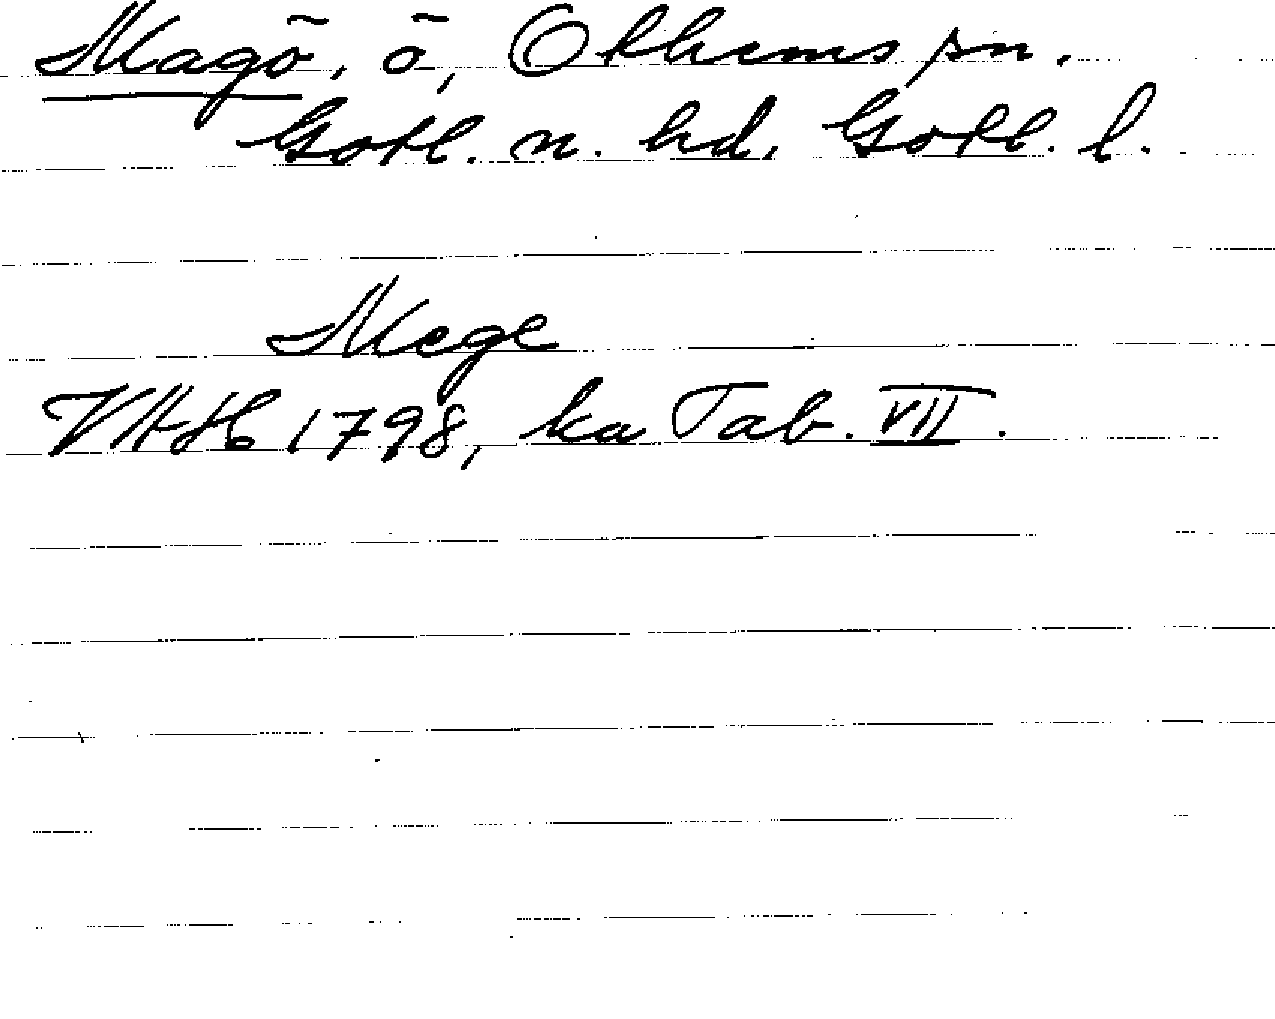 Magö, ö, Othems sn.
Gotl. n. hd. Gotl. l.
Mege
VAH 1798, ka Tab. VII.